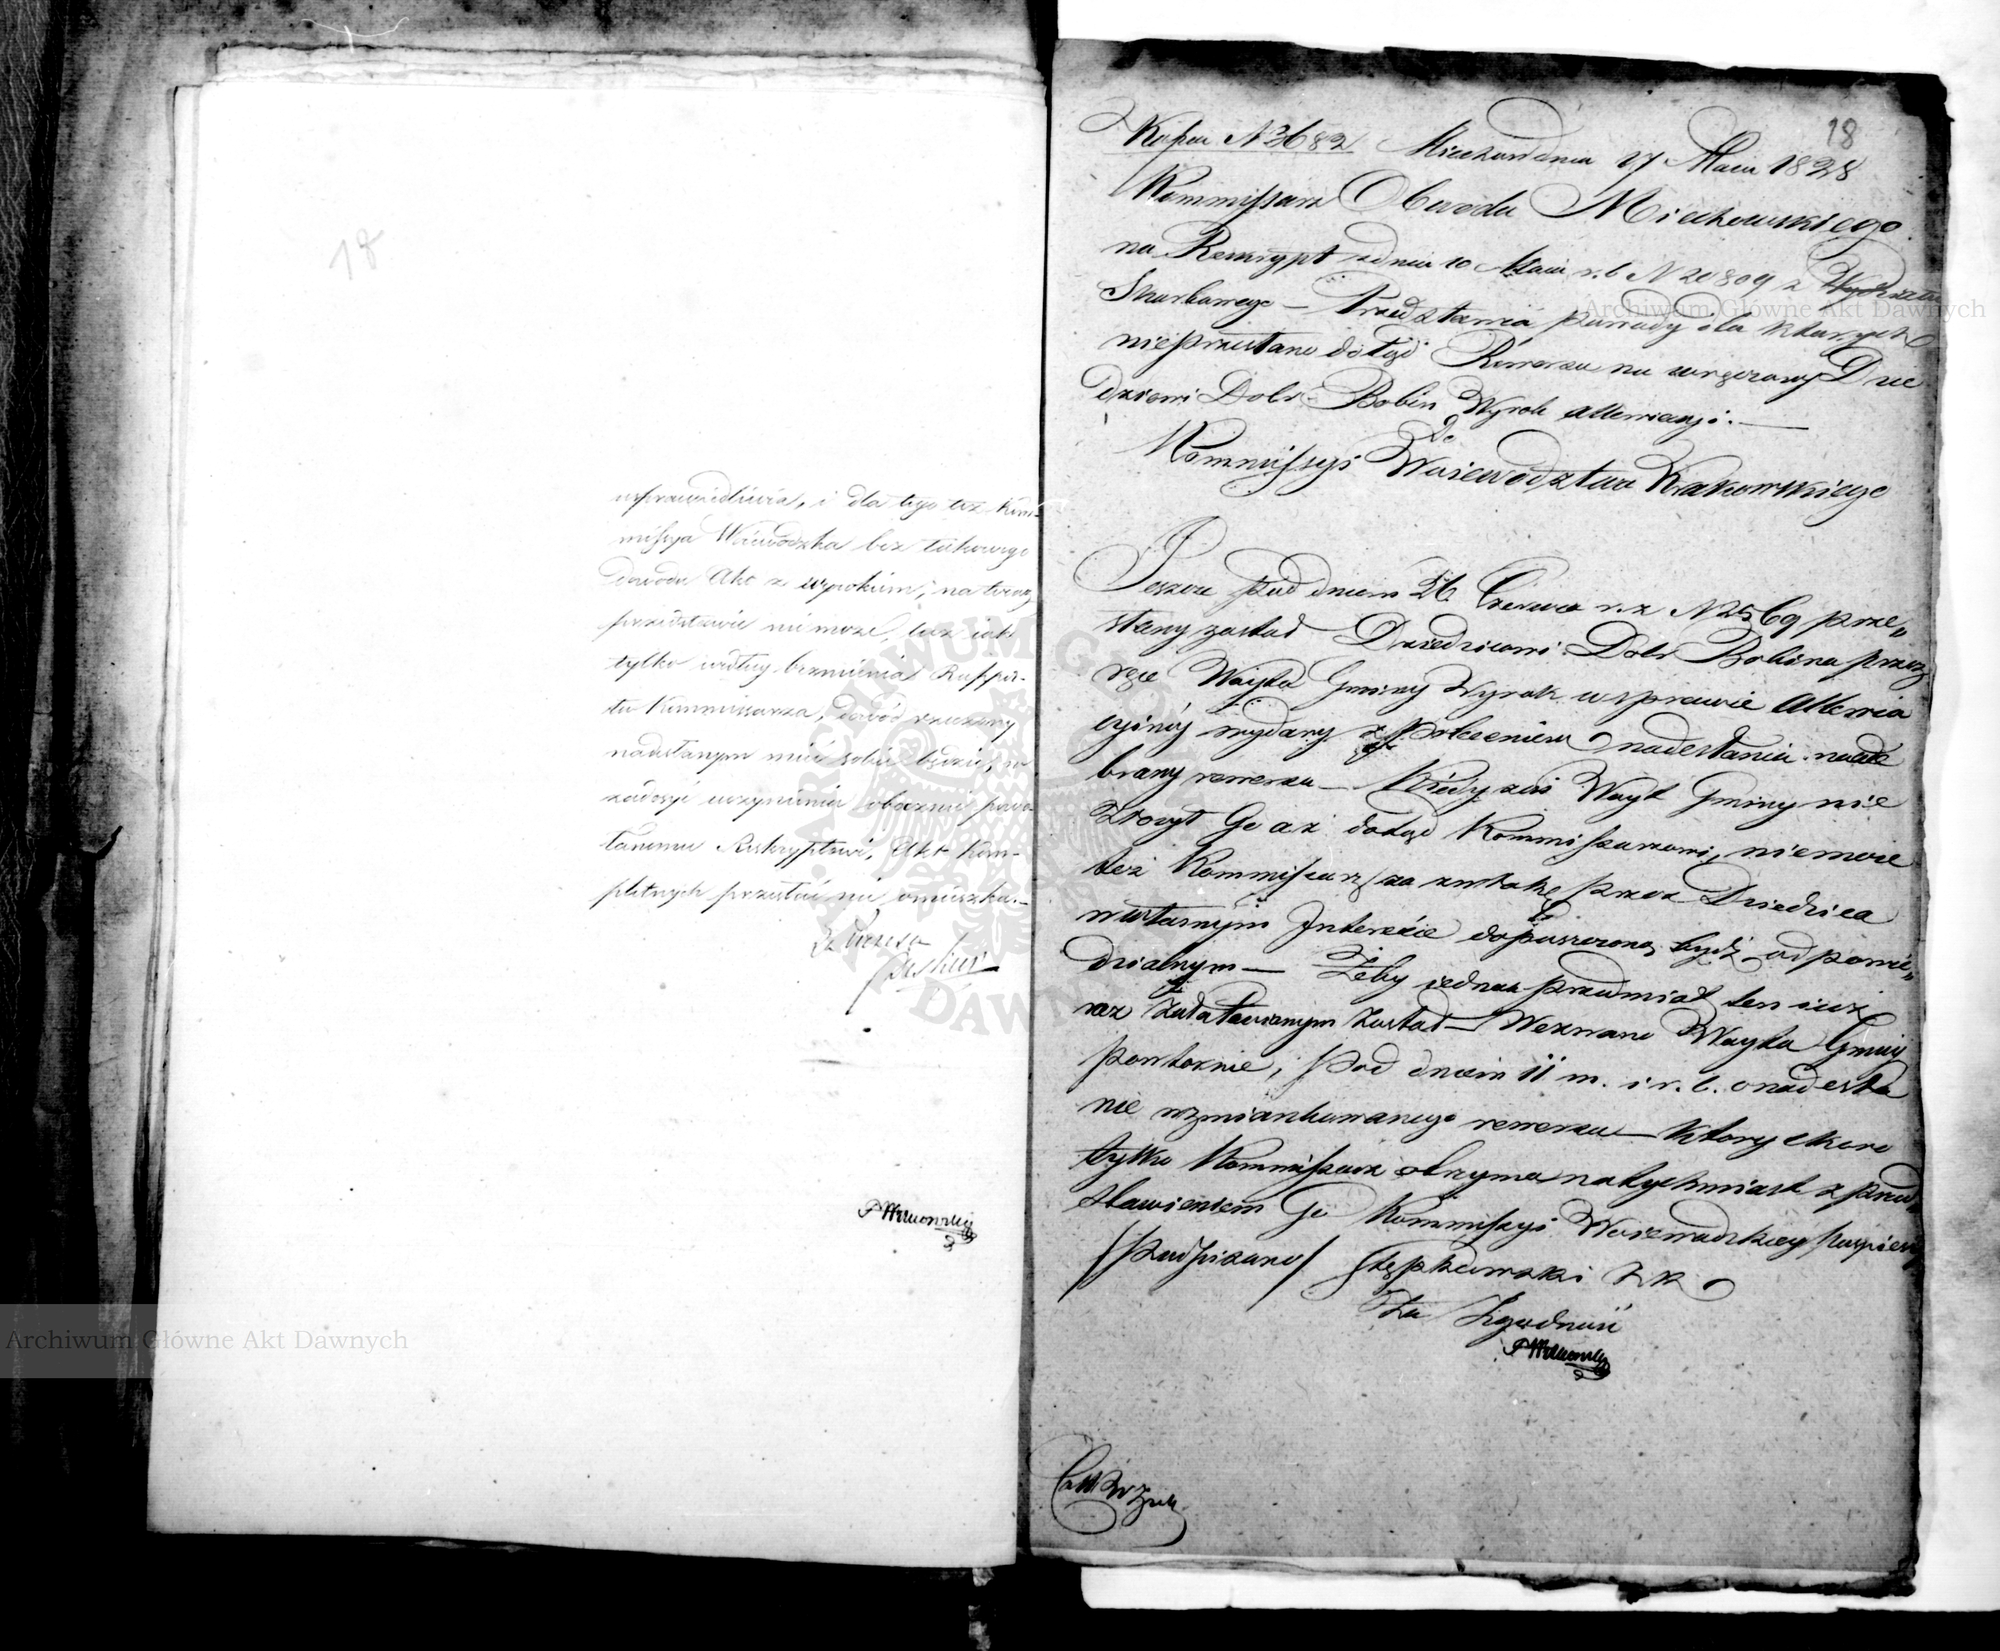 18
usprawiedliwia, i dla tego też Kom-
missya Wiewódzka bez takowego
dowodu Akt z wyrokiem, na teraz
przedstawić nie może, lecz iak
tylko według brzmienia Rappor-
tu Kommissarza, dowód rzeczony
nadesłanym mieć sobie będzie, w
zadosyć uczynieniu obocznie powo-
łanemu Reskryptowi, Akt kom-
pletnych przesłać nie omieszka.
Za Prezesa
18
Kopia N 3682 Miechow dnia 17 Maia 1828
Kommissarz Obwodu Miechowskiego
na Reskrypt z dnia 10 Maia r. b N 20809 z Wydziału
Skarbowego — Przedstawia powody dla których
nieprzesłano dotąd Rewersu na wręczony Dzie
dzicowi Dobr Bobin Wyrok allewiacyi. —
do
Kommissyi Woiewodztwa Krakowskiego
Jeszcze pod dniem 26 Czerwca r. z N 2569 prze„
słany został Dziedzicowi Dobr Bobina przez
ręce Woyta Gminy Wyrok w sprawie Allewia
cyinéy wydany z poleceniem nadesłania nade
brany rewersu — Kiedy zaś Woyt Gminy nie
złożył Go aż dotąd Kommissarzowi, niemoże
też Kommissarz za zwłokę przez Dziedzica
w własnym Interesie dopuszczoną bydź odpowie„
dzialnym — Żeby iednak przedmiot ten iuż
raz załatwionym został — Wezwano Woyta Gminy
powtornie, pod dniem 11 m. i r. b. o nadesła
nie wzmiankowanego rewersu — który skoro
tylko Kommissarz otrzyma natychmiast z przed
stawieniem Go Kommissyi Woiewodzkiey pospieszy
/podpisano/ Stępkowski Z K
Za Zgodność